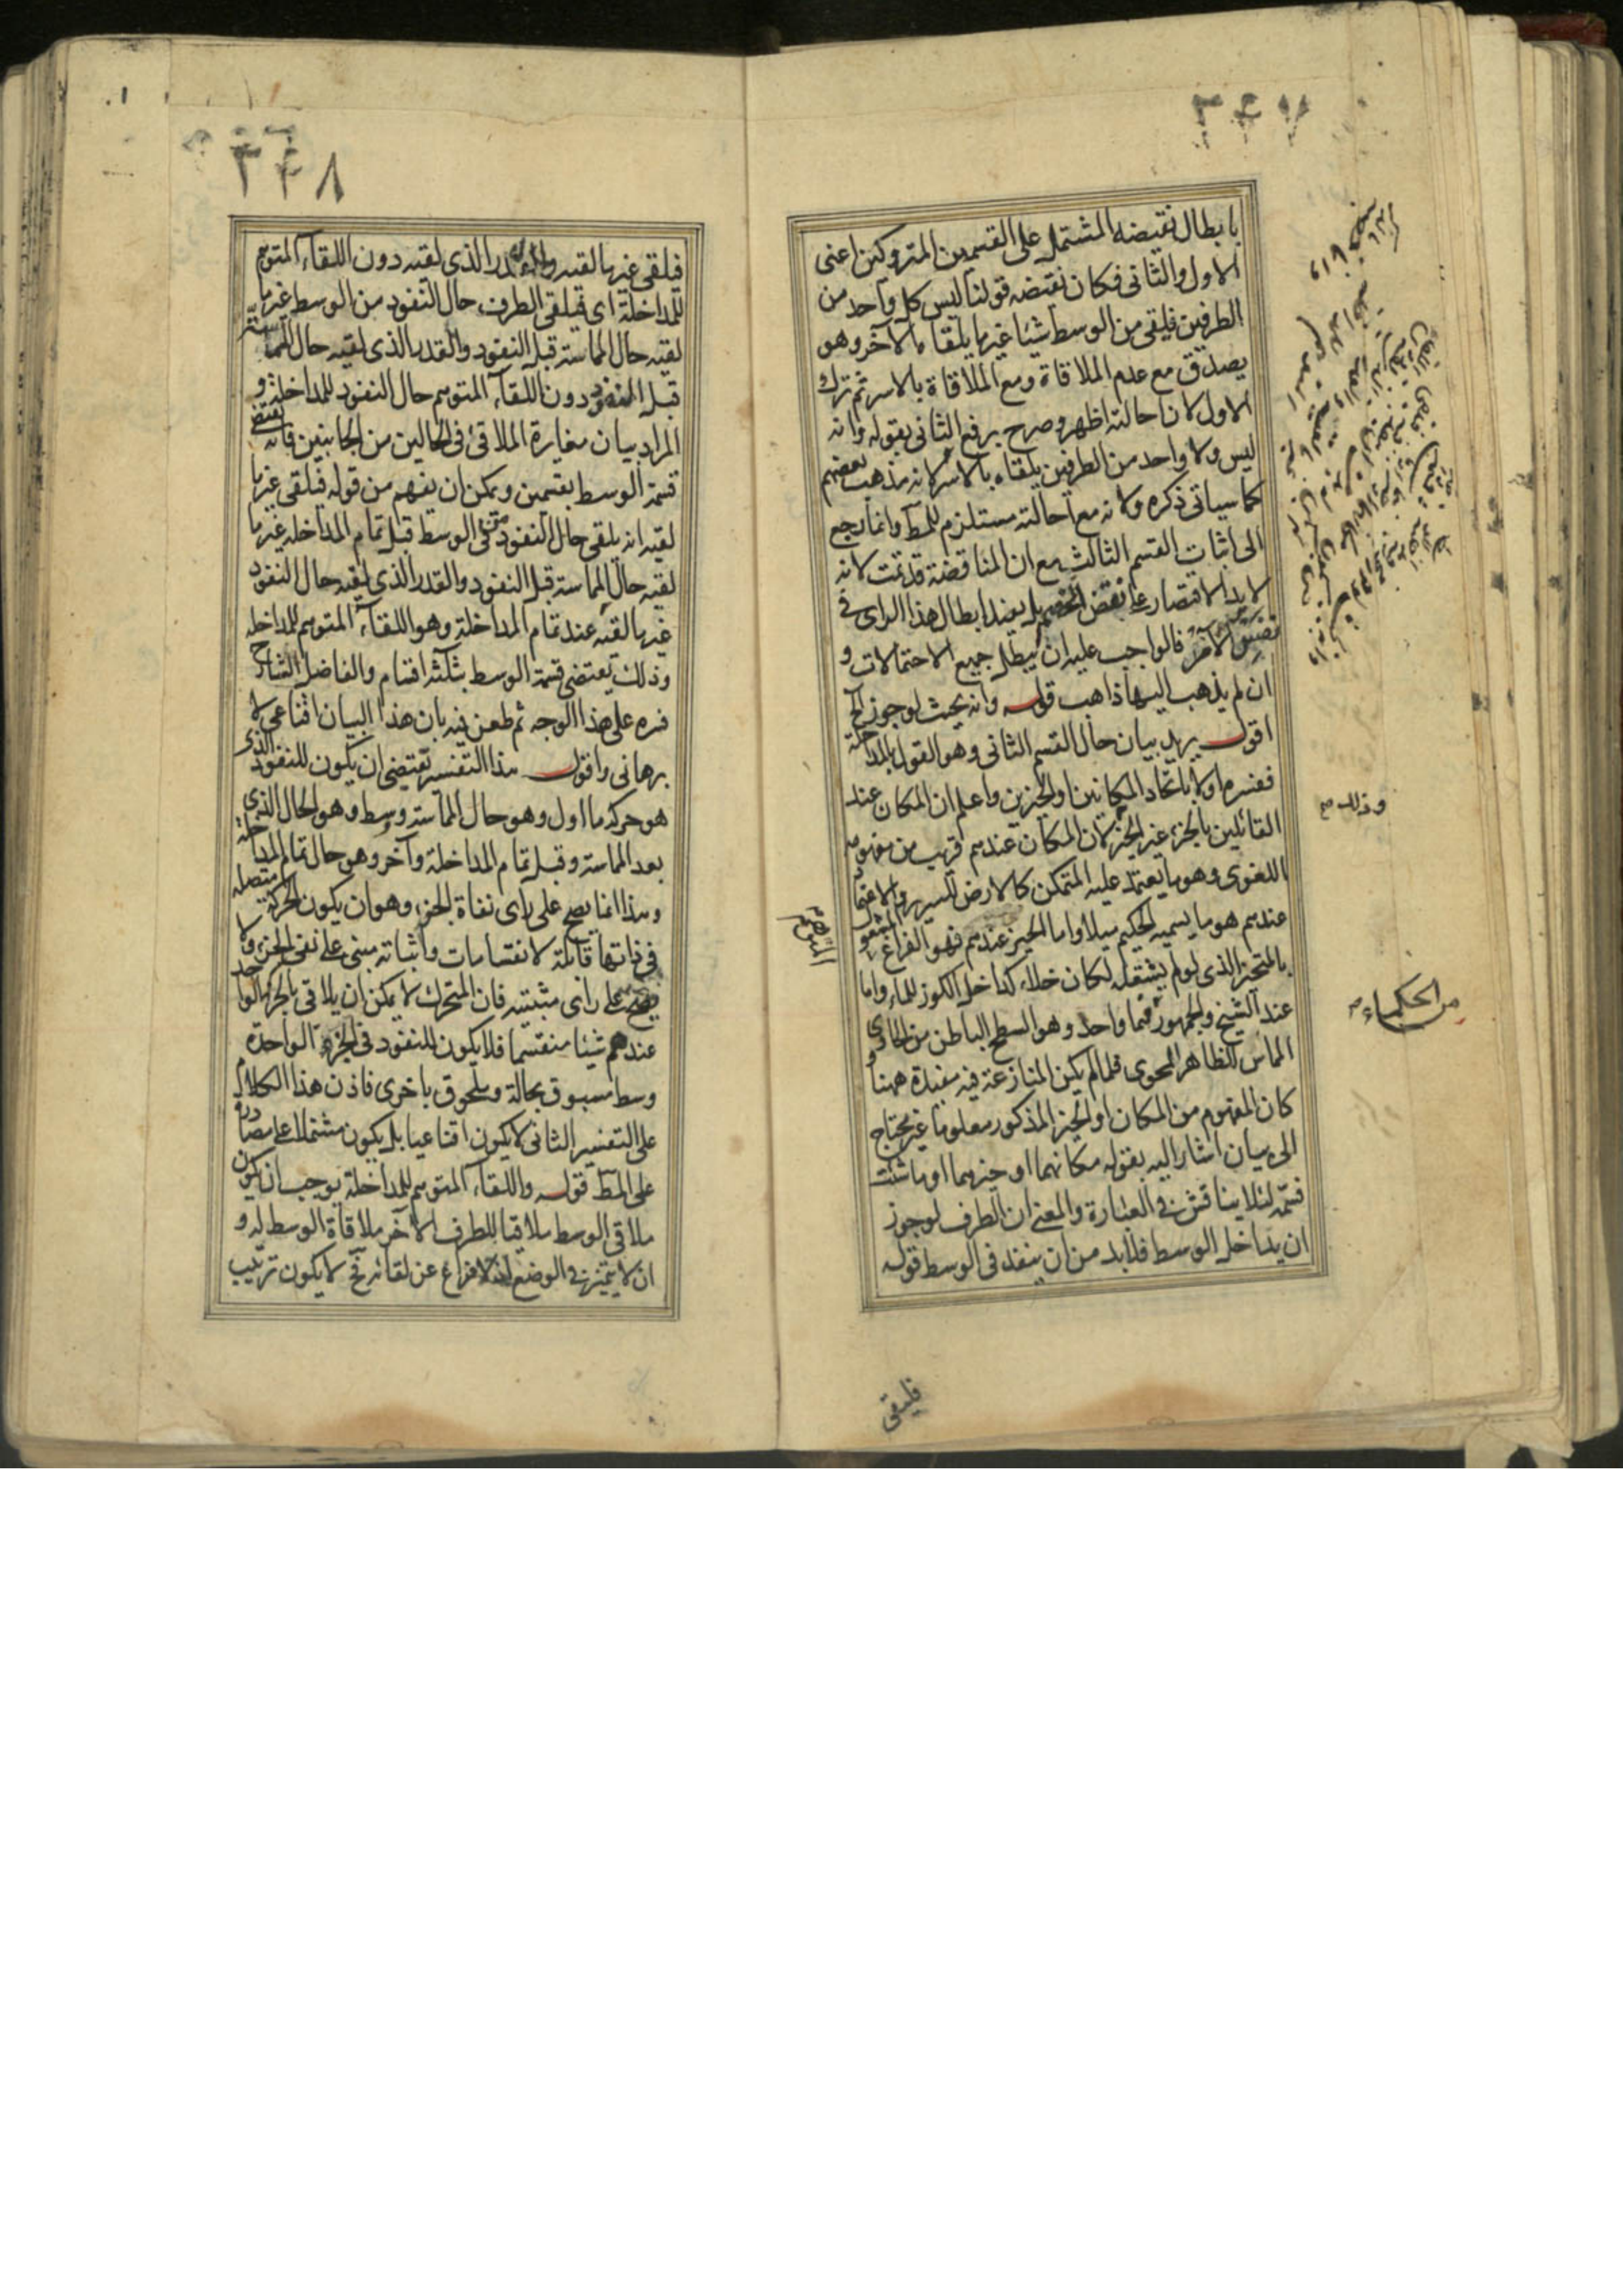 ٣٤٧
بابطال نقيضه المشتمل على القسمين المتروكين اعنى
الاول والثانى فكان نقيضه قولنا ليس كل واحد من
الطرفين فيلقى من الوسط شيئا غير ما يلقاه الآخر وهو
يصدق مع عدم الملاقاة ومع الملاقاة بالاسر ثم ترك
الاول لان احالته اظهر وصرح برفع الثانى بقوله وانه
ليس ولا واحد من الطرفين يلقاه بالاسر لانه مذهب بعضهم
كما سياتى ذكره ولانه مع احالته مستلزم للمط وانما رجع
الى اثبات القسم الثالث مع ان المناقضة قد تمت لانه
لا يريد الاقتصار على نقض الخصم بل يفيد ابطال هذا الراى فى
الامر فالواجب عليه ان يبطل جميع الاحتمالات و
ان لم يذهب اليها ذاهب قوله وانه بحيث لو جوز آلخ
اقول يريد بيان حال القسم الثانى وهو القول بالمداخلة
ففسره اولا باتحاد المكانين او الحيزين واعلم ان المكان عند
القائلين بالجزء غير الحيز لان المكان عندهم قريب من مفهومه
اللغوى وهو ما يعتمد عليه المتمكن كالارض للسرير والاعتماد
عندهم هو ما يسميه الحكيم ميلا واما الحيز عندهم فهو الفراغ
المتوهم
المشغول
بالمتحيز الذى لو لم يشغله لكان خلاء كداخل الكوز للماء واما
عند الشيخ والجمهور فهما واحد وهو السطح الباطن من الحاوى
من الحكماء
المماس للظاهر المحوى فلما لم يكن المنازعة فيه مفيدة ههنا و
كان المفهوم من المكان او الحيز المذكور معلوما غير محتاج
الى بيان اشار اليه بقوله مكانهما او حيزهما او ما شئت
فسمه لئلا يناقش فى العبارة والمعنى ان الطرف لو جوز
ان يداخل الوسط فلا بد من ان ينفذ فى الوسط قوله
وذلك
فيلقى
٣٤٨
فيلقى غير ما لقيه والقدر الذى لقيه دون اللقاء المتوهم
للمداخلة اى فيلقى الطرف حال النفوذ من الوسط غير ما
لقيه حال المماسة قبل النفوذ والقدر الذى لقيه حال المماسة
قبل النفوذ دون اللقاء المتوهم حال النفوذ للمداخلة و
المراد بيان مغايرة الملاقى فى الحالين من الجانبين فانه يقتضى
قسمة الوسط بقسمين ويمكن ان يفهم من قوله فيلقى غير ما
لقيه انه يلقى حال النفوذ فى الوسط قبل تمام المداخلة غير ما
لقيه حال المماسة قبل النفوذ والقدر الذى لقيه حال النفوذ
غير ما لقيه عند تمام المداخلة وهو اللقاء المتوهم للمداخلة
وذلك يقتضى قسمة الوسط بثلثة اقسام والفاضل الشارح
فسره على هذا الوجه ثم طعن فيه بان هذا البيان اقناعى لا
برهانى واقول هذا التفسير يقتضى ان يكون للنفوذ الذى
هو حركة ما اول وهو حال المماسة ووسط وهو الحال الذى
بعد المماسة وقبل تمام المداخلة وآخر وهو حال تمام المداخلة
وهذا انما يصح على راى نفاة الجزء وهو ان يكون الحركة متصلة
فى ذاتها قابلة لانقسامات واثباته مبنى على نفى الجزء ولا
يصح على راى مثبتيه فان المتحرك لا يمكن ان يلاقى بالجزء الواحد
عندهم شيئا منقسما فلا يكون للنفوذ فى الجزء الواحدة
وسط مسبوق بحالة وملحوق باخرى فاذن هذا الكلام
على التفسير الثانى لا يكون اقناعيا بل يكون مشتملا على مصادرة
على المط قوله واللقاء المتوهم للمداخلة يوجب ان يكون
ملاقى الوسط ملاقيا للطرف الآخر ملاقاة الوسط له و
ان لا يتميز فى الوضع اذ لا فراغ عن لقائه فح لا يكون ترتيب